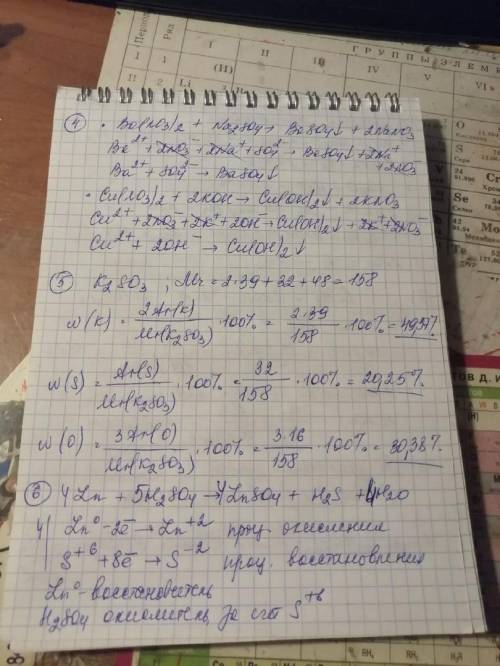 Период
Ряд
ГРУППЫ ЭЛЕМ
I
II
III
IV
V
VI
(H)
1
1
II
2
Li
④ • Ba(NO3)2 + Na2SO4 → BaSO4↓ + 2NaNO3
Ba2+ + 2NO3- + 2Na+ + SO4 2- → BaSO4↓ + 2Na+
+ 2NO3-
Ba2+ + SO4 2- → BaSO4↓
• Cu(NO3)2 + 2KOH → Cu(OH)2↓ + 2KNO3
Cu2+ + 2NO3- + 2K+ + 2OH- → Cu(OH)2↓ + 2K+ + 2NO3-
Cu2+ + 2OH- → Cu(OH)2↓
⑤ K2SO3, Mr = 2·39 + 32 + 48 = 158
w(K) = 2Ar(K) / Mr(K2SO3) · 100% = 2·39 / 158 · 100% = 49,37%
w(S) = Ar(S) / Mr(K2SO3) · 100% = 32 / 158 · 100% = 20,25%
w(O) = 3Ar(O) / Mr(K2SO3) · 100% = 3·16 / 158 · 100% = 30,38%
⑥ 4Zn + 5H2SO4 → 4ZnSO4 + H2S + 4H2O
4 | Zn0 - 2e- → Zn+2 проц. окисления
S+6 + 8e- → S-2 проц. восстановления
Zn0 - восстановитель
H2SO4 окислитель за счёт S+6
O
S
Se
Mo